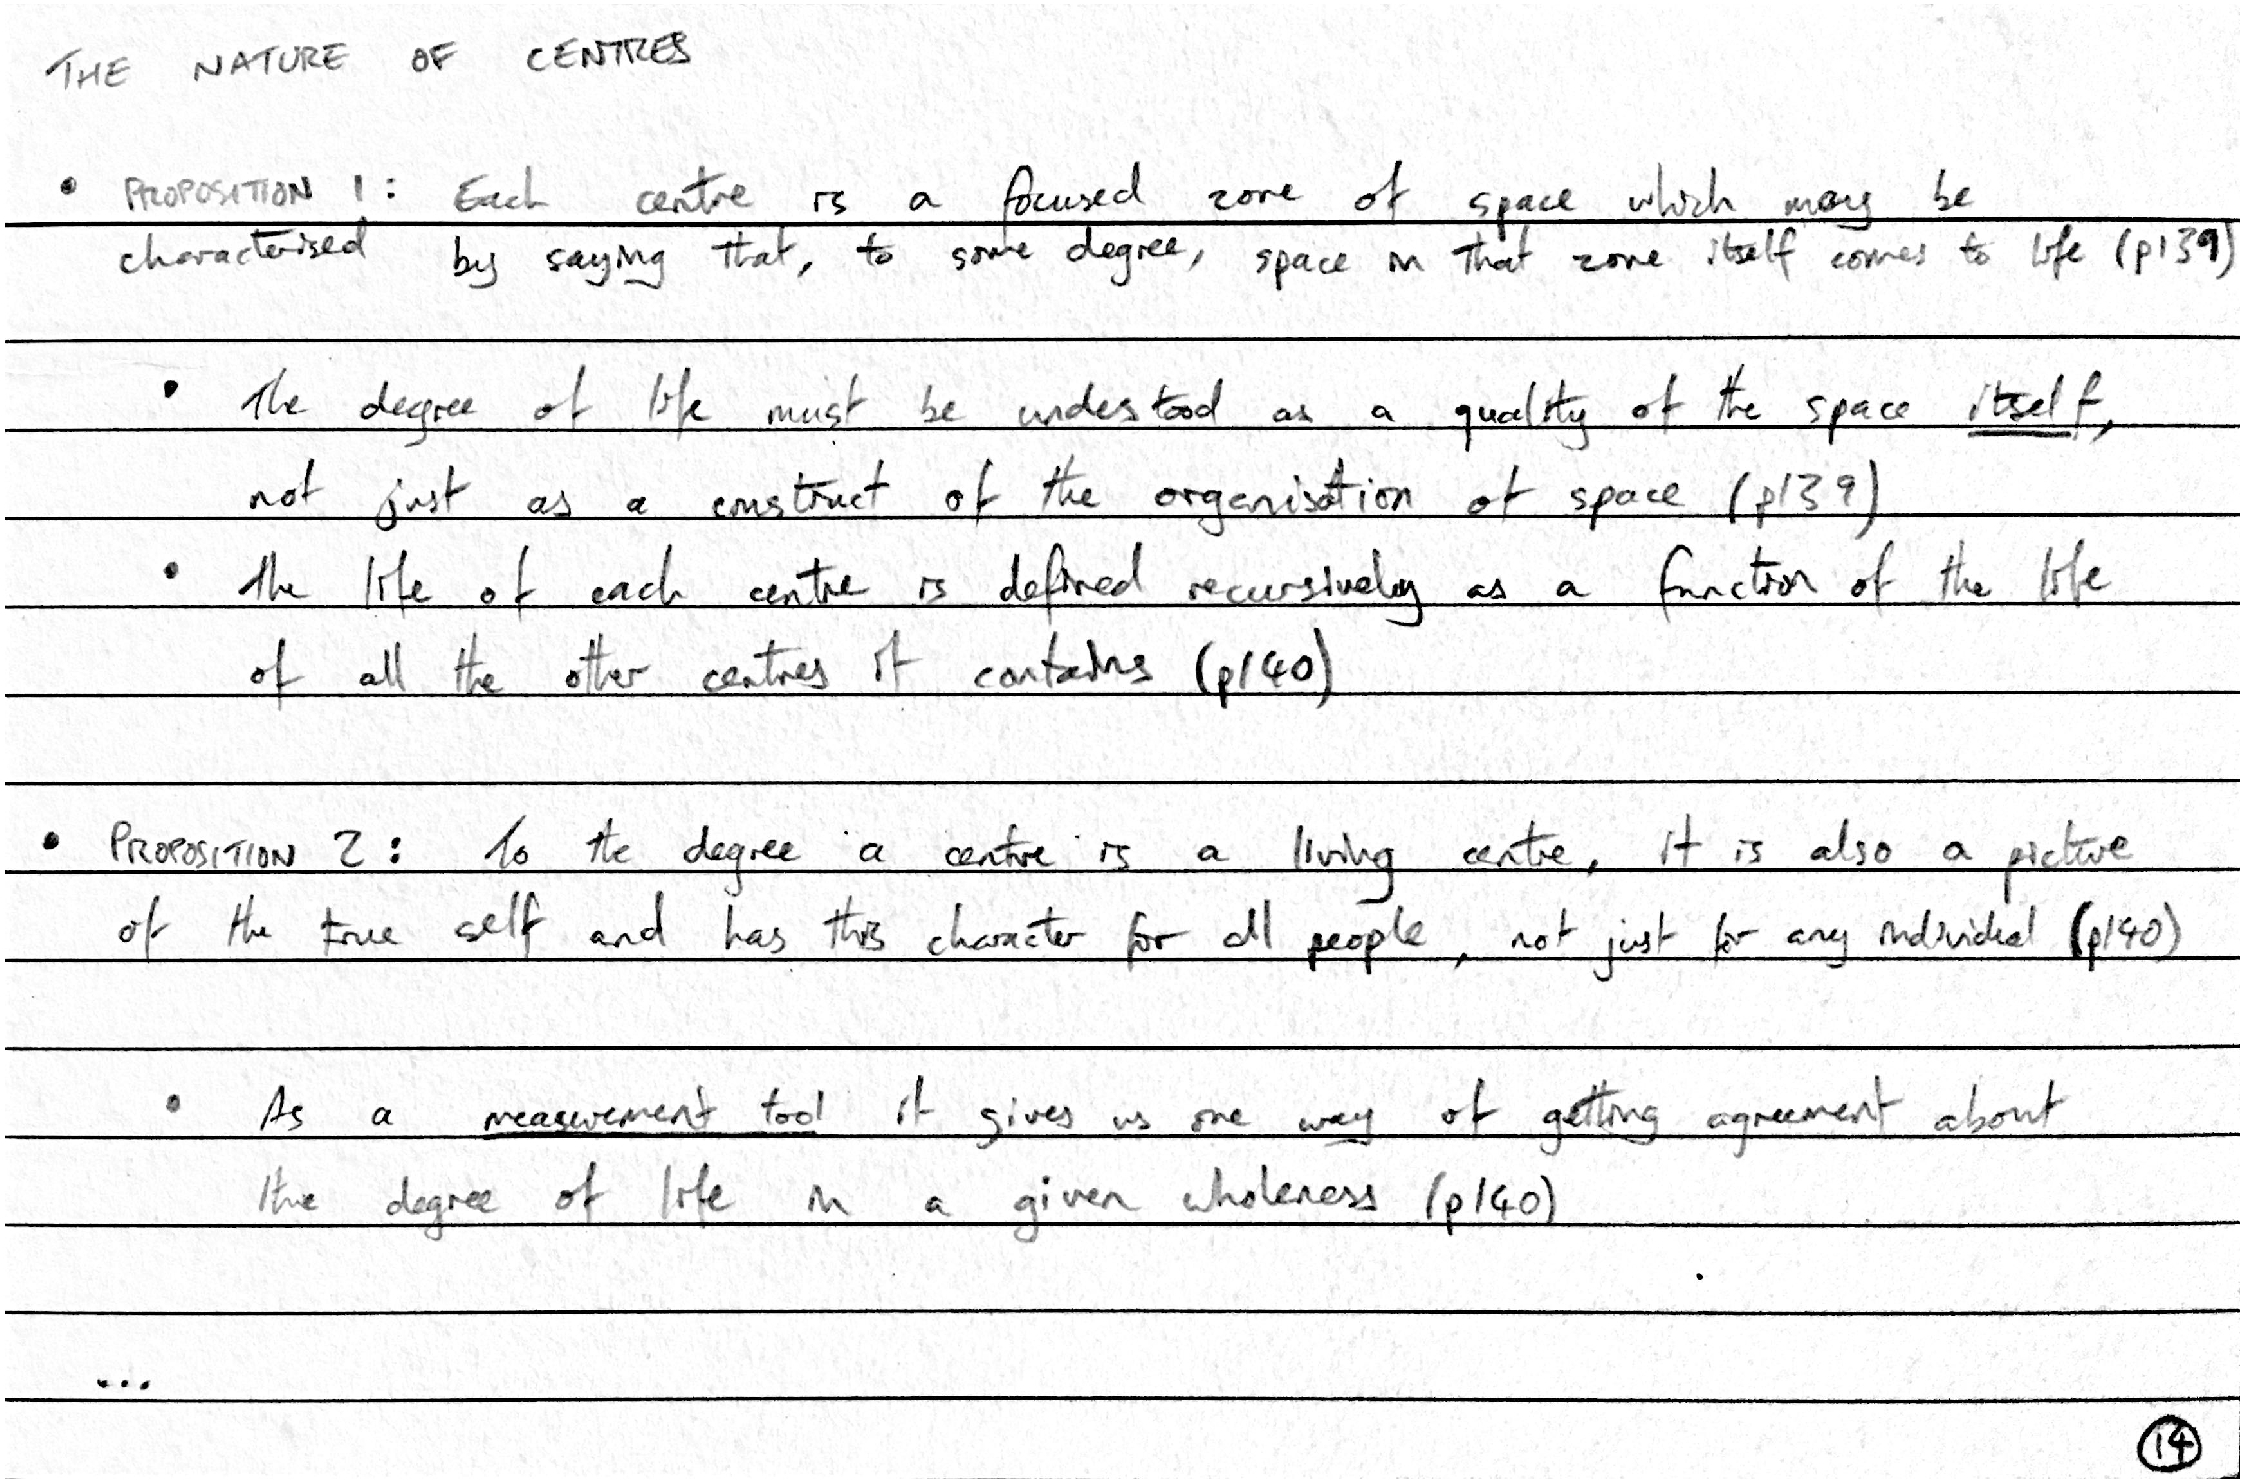 THE NATURE OF CENTRES
• PROPOSITION 1: Each centre is a focused zone of space which may be
characterised by saying that, to some degree, space in that zone itself comes to life (p139)
• The degree of life must be understood as a quality of the space itself,
not just as a construct of the organisation of space (p139)
• The life of each centre is defined recursively as a function of the life
of all the other centres it contains (p140)
• PROPOSITION 2: To the degree a centre is a living centre, it is also a picture
of the true self and has this character for all people, not just for any individual (p140)
• As a measurement tool it gives us one way of getting agreement about
the degree of life in a given wholeness (p140)
...
14